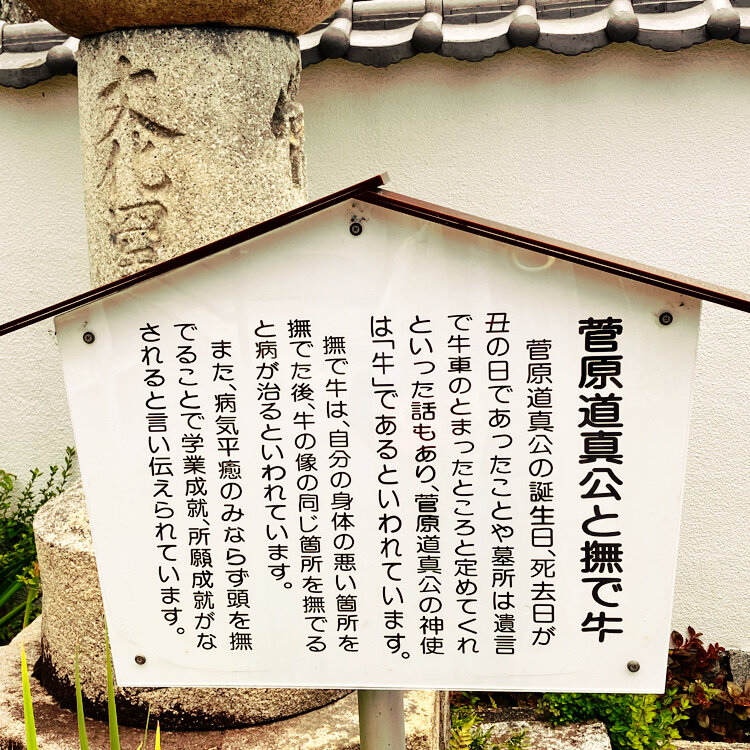 菅原道真公と撫で牛
菅原道真公の誕生日、死去日が
丑の日であったことや墓所は遺言
で牛車のとまったところと定めてくれ
といった話もあり、菅原道真公の神使
は「牛」であるといわれています。
撫で牛は、自分の身体の悪い箇所を
撫でた後、牛の像の同じ箇所を撫でる
と病が治るといわれています。
また、病気平癒のみならず頭を撫
でることで学業成就、所願成就がな
されると言い伝えられています。